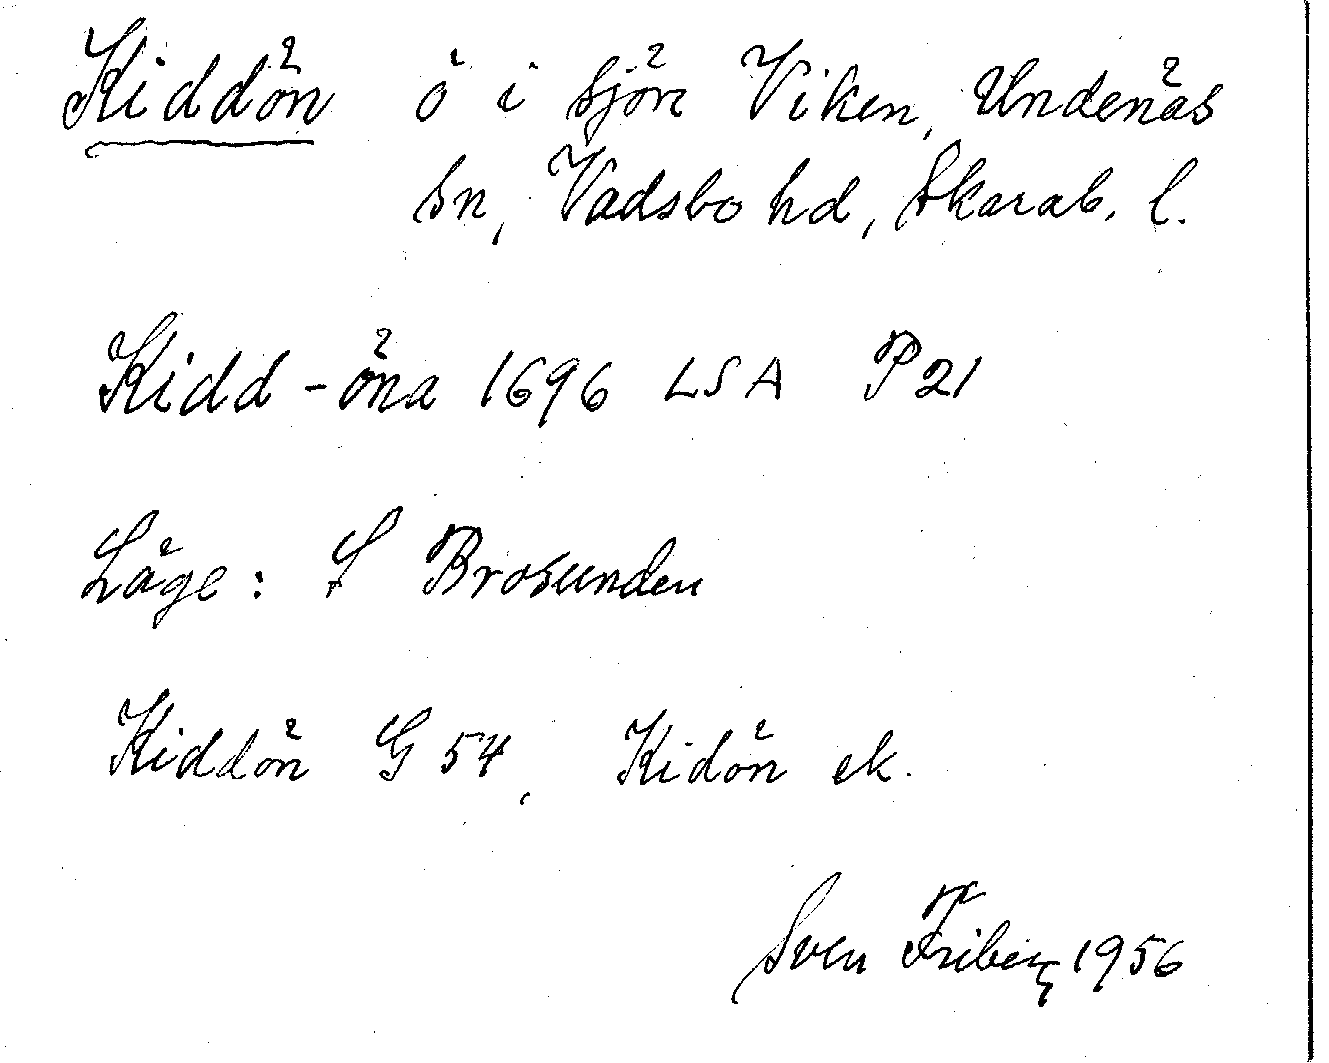 Kiddön ö i sjön Viken, Undenäs
sn, Vadsbo hd, Skarab. l.
Kidd-öna 1696 LSA P21
Läge: S Brosunden
Kiddön G 54, Kidön ek.
Sven Friberg 1956